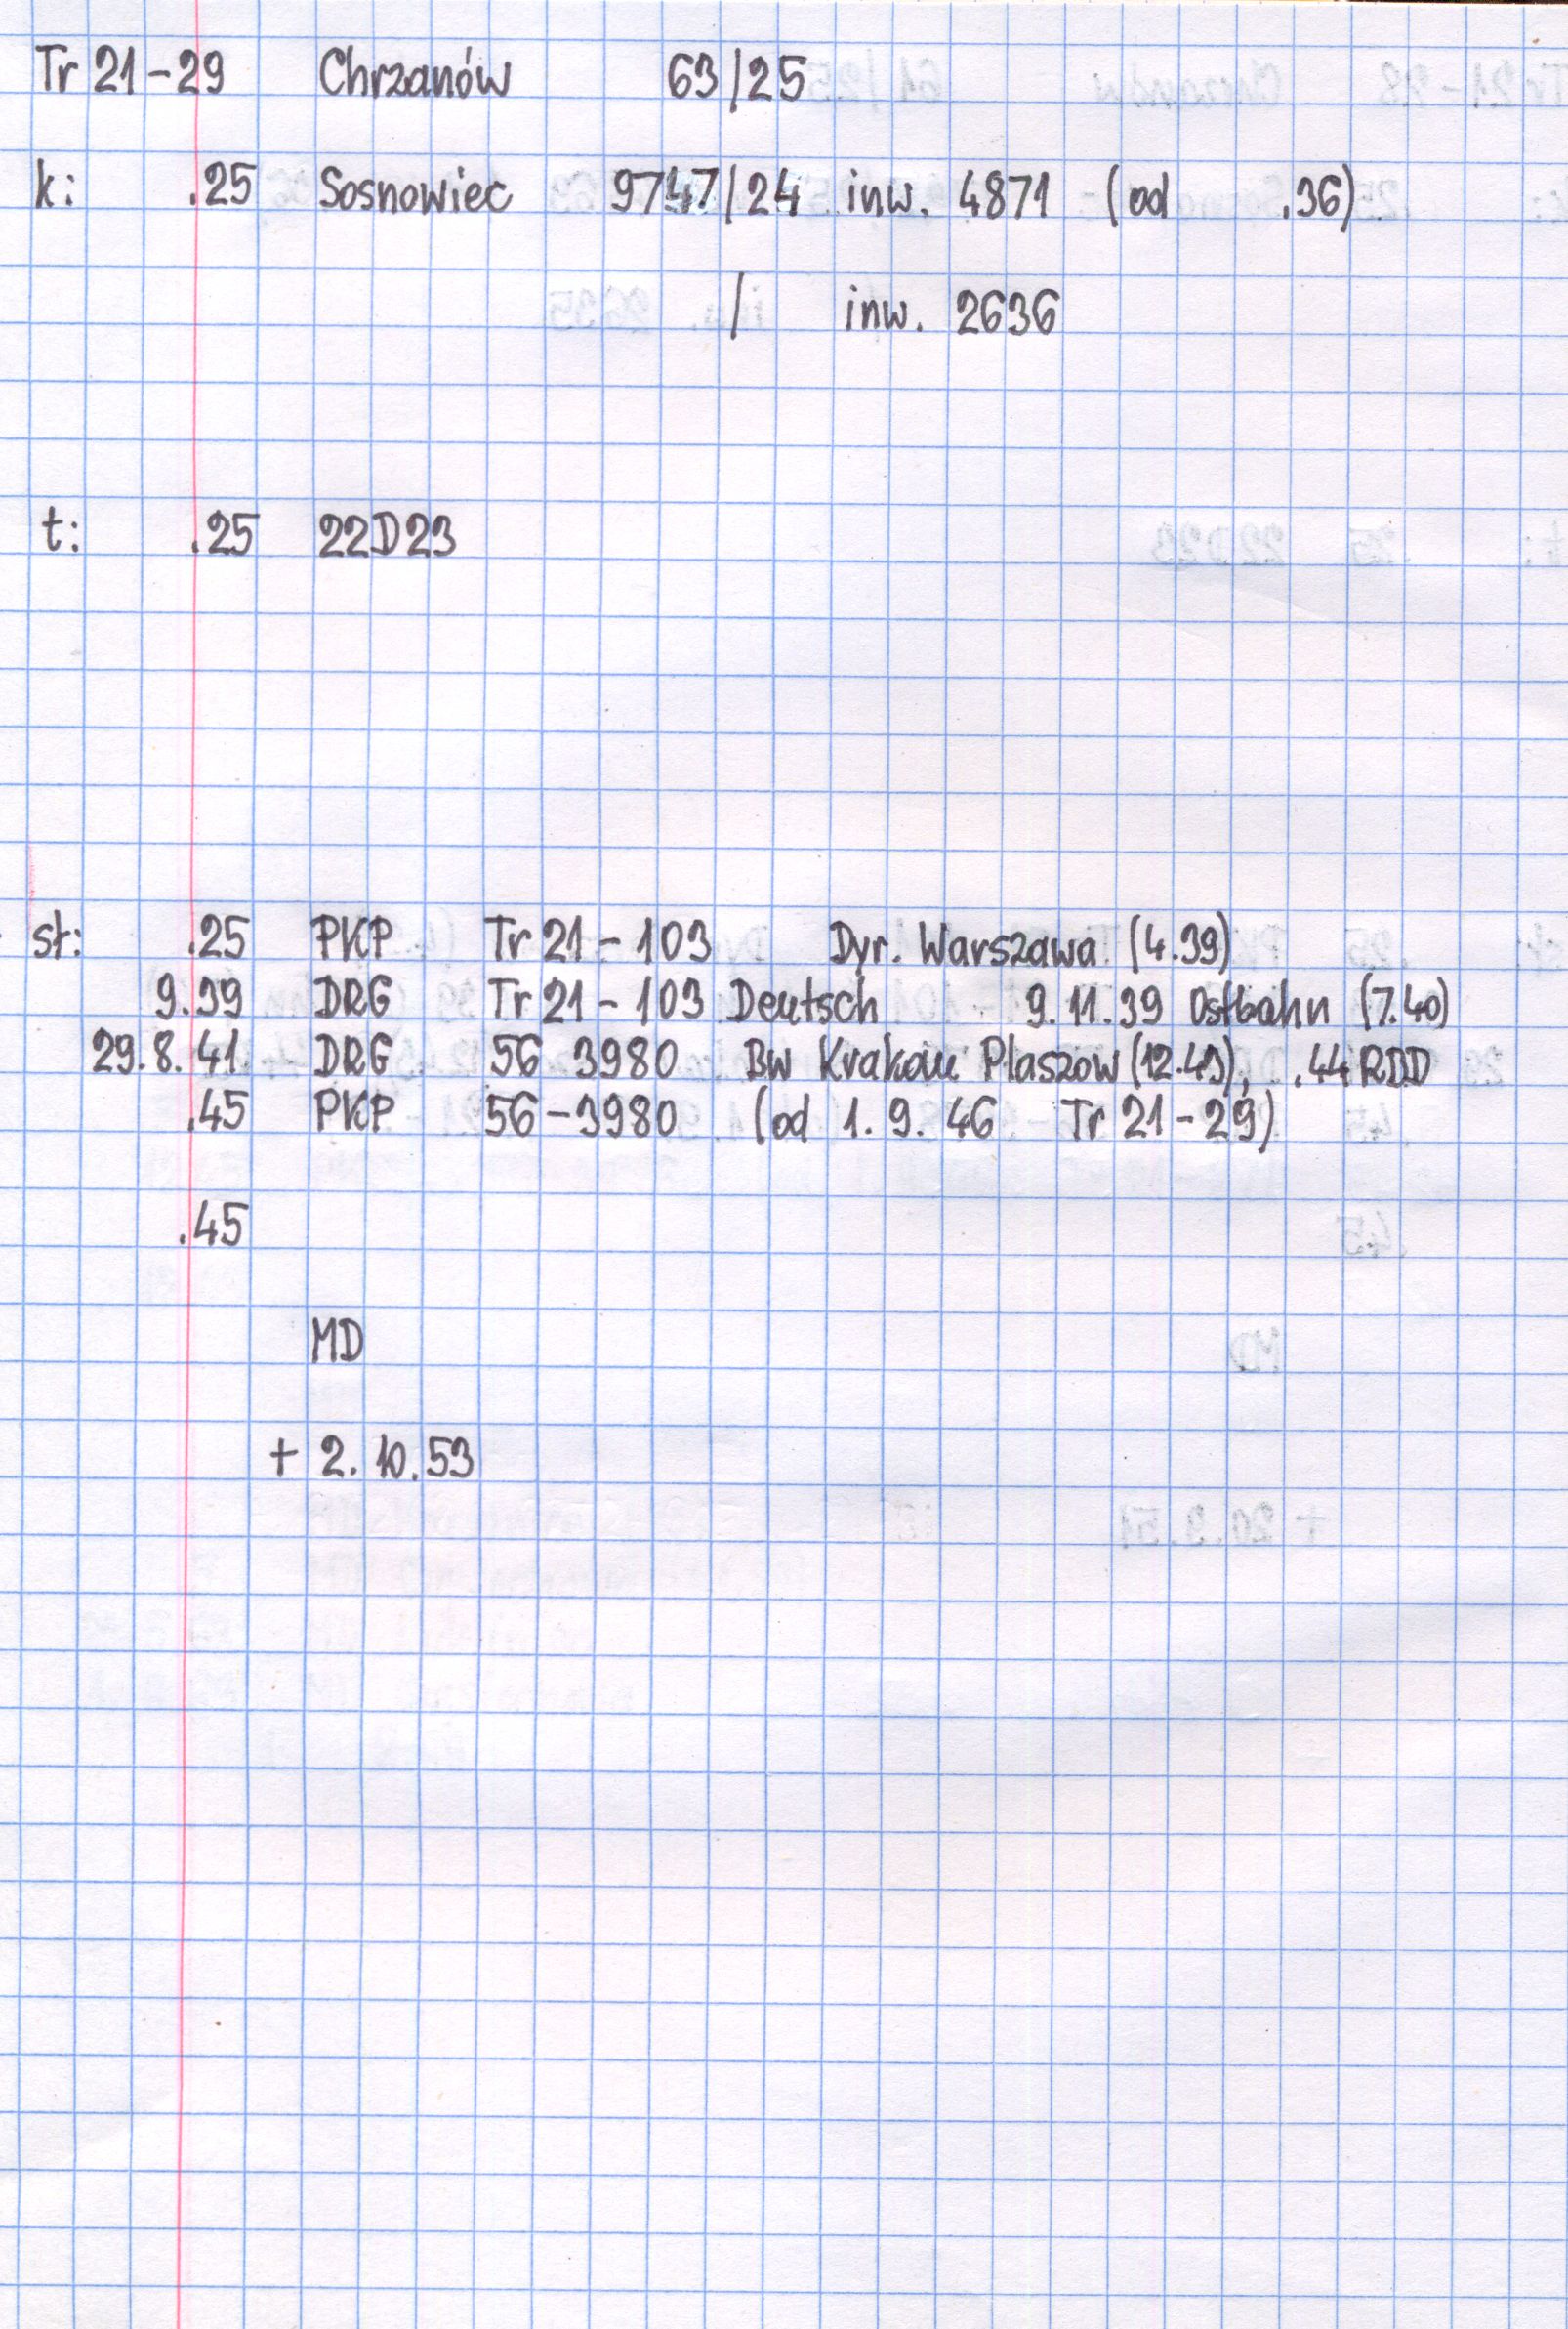 Tr 21-29 Chrzanów 63/25
k: .25 Sosnowiec 9747/24 inw. 4871 (od .36)
/ inw. 2636
t: .25 22D23
sł: .25 PKP Tr 21-103 Dyr. Warszawa (4.39)
9.39 DRG Tr 21-103 Deutsch 9.11.39 Ostbahn (7.40)
29.8.41 DRG 56 3980 Bw Krakau Plaszow (12.43), .44 RDD
.45 PKP 56-3980 (od 1.9.46 Tr 21-29)
.45
MD
+ 2.10.53